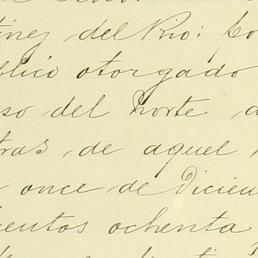 tínez del Rio: Co
blico otorgado
so del Norte a
tras de aquel
once de Diciem
cientos ochenta